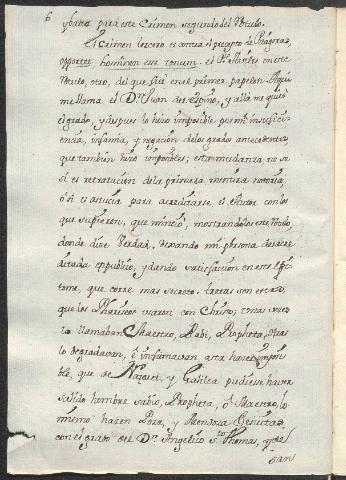 6
y basta para este Crimen segundo del Rotulo.
El Crimen tercero es contra el precepto de Pitagoras,
opportet hominem esse unum. el P. Poza es en este
Rotulo, otro, del que fue en el primer papelon. Aqui
me llama el D.r Juan del Espino, y allà me quitò
el grado, y despues lo hizo imposible por mi insufici
encia, infamia, y negacion de los grados antecedentes,
que tambien hizo imposibles; esta mudanza no se
si es retratacion de la primera mentira notoria,
ò si es astucia para acreditarse el Autor con los
que supieren, que mintiò, mostrandoles este Rotulo,
donde dice Verdad, dexando mi persona desacre
ditada en publico, y dando satisfaccion en este
tome, que corre mas secreto. tretas son estas,
que los Phariseos usaron con Christo, unas veces
lo llamaban Maestro, Rabi, Propheta, otras
lo degradavan, è infamavan asta hacer imposi
ble, que de Nazaret, y Galilea pudiese haver
salido hombre sabio, Propheta, ò Maestro, lo
mismo hacen Poza, y Mendoza Jesuitas
con el grado del D.r Angelico S.to Thomas, y del